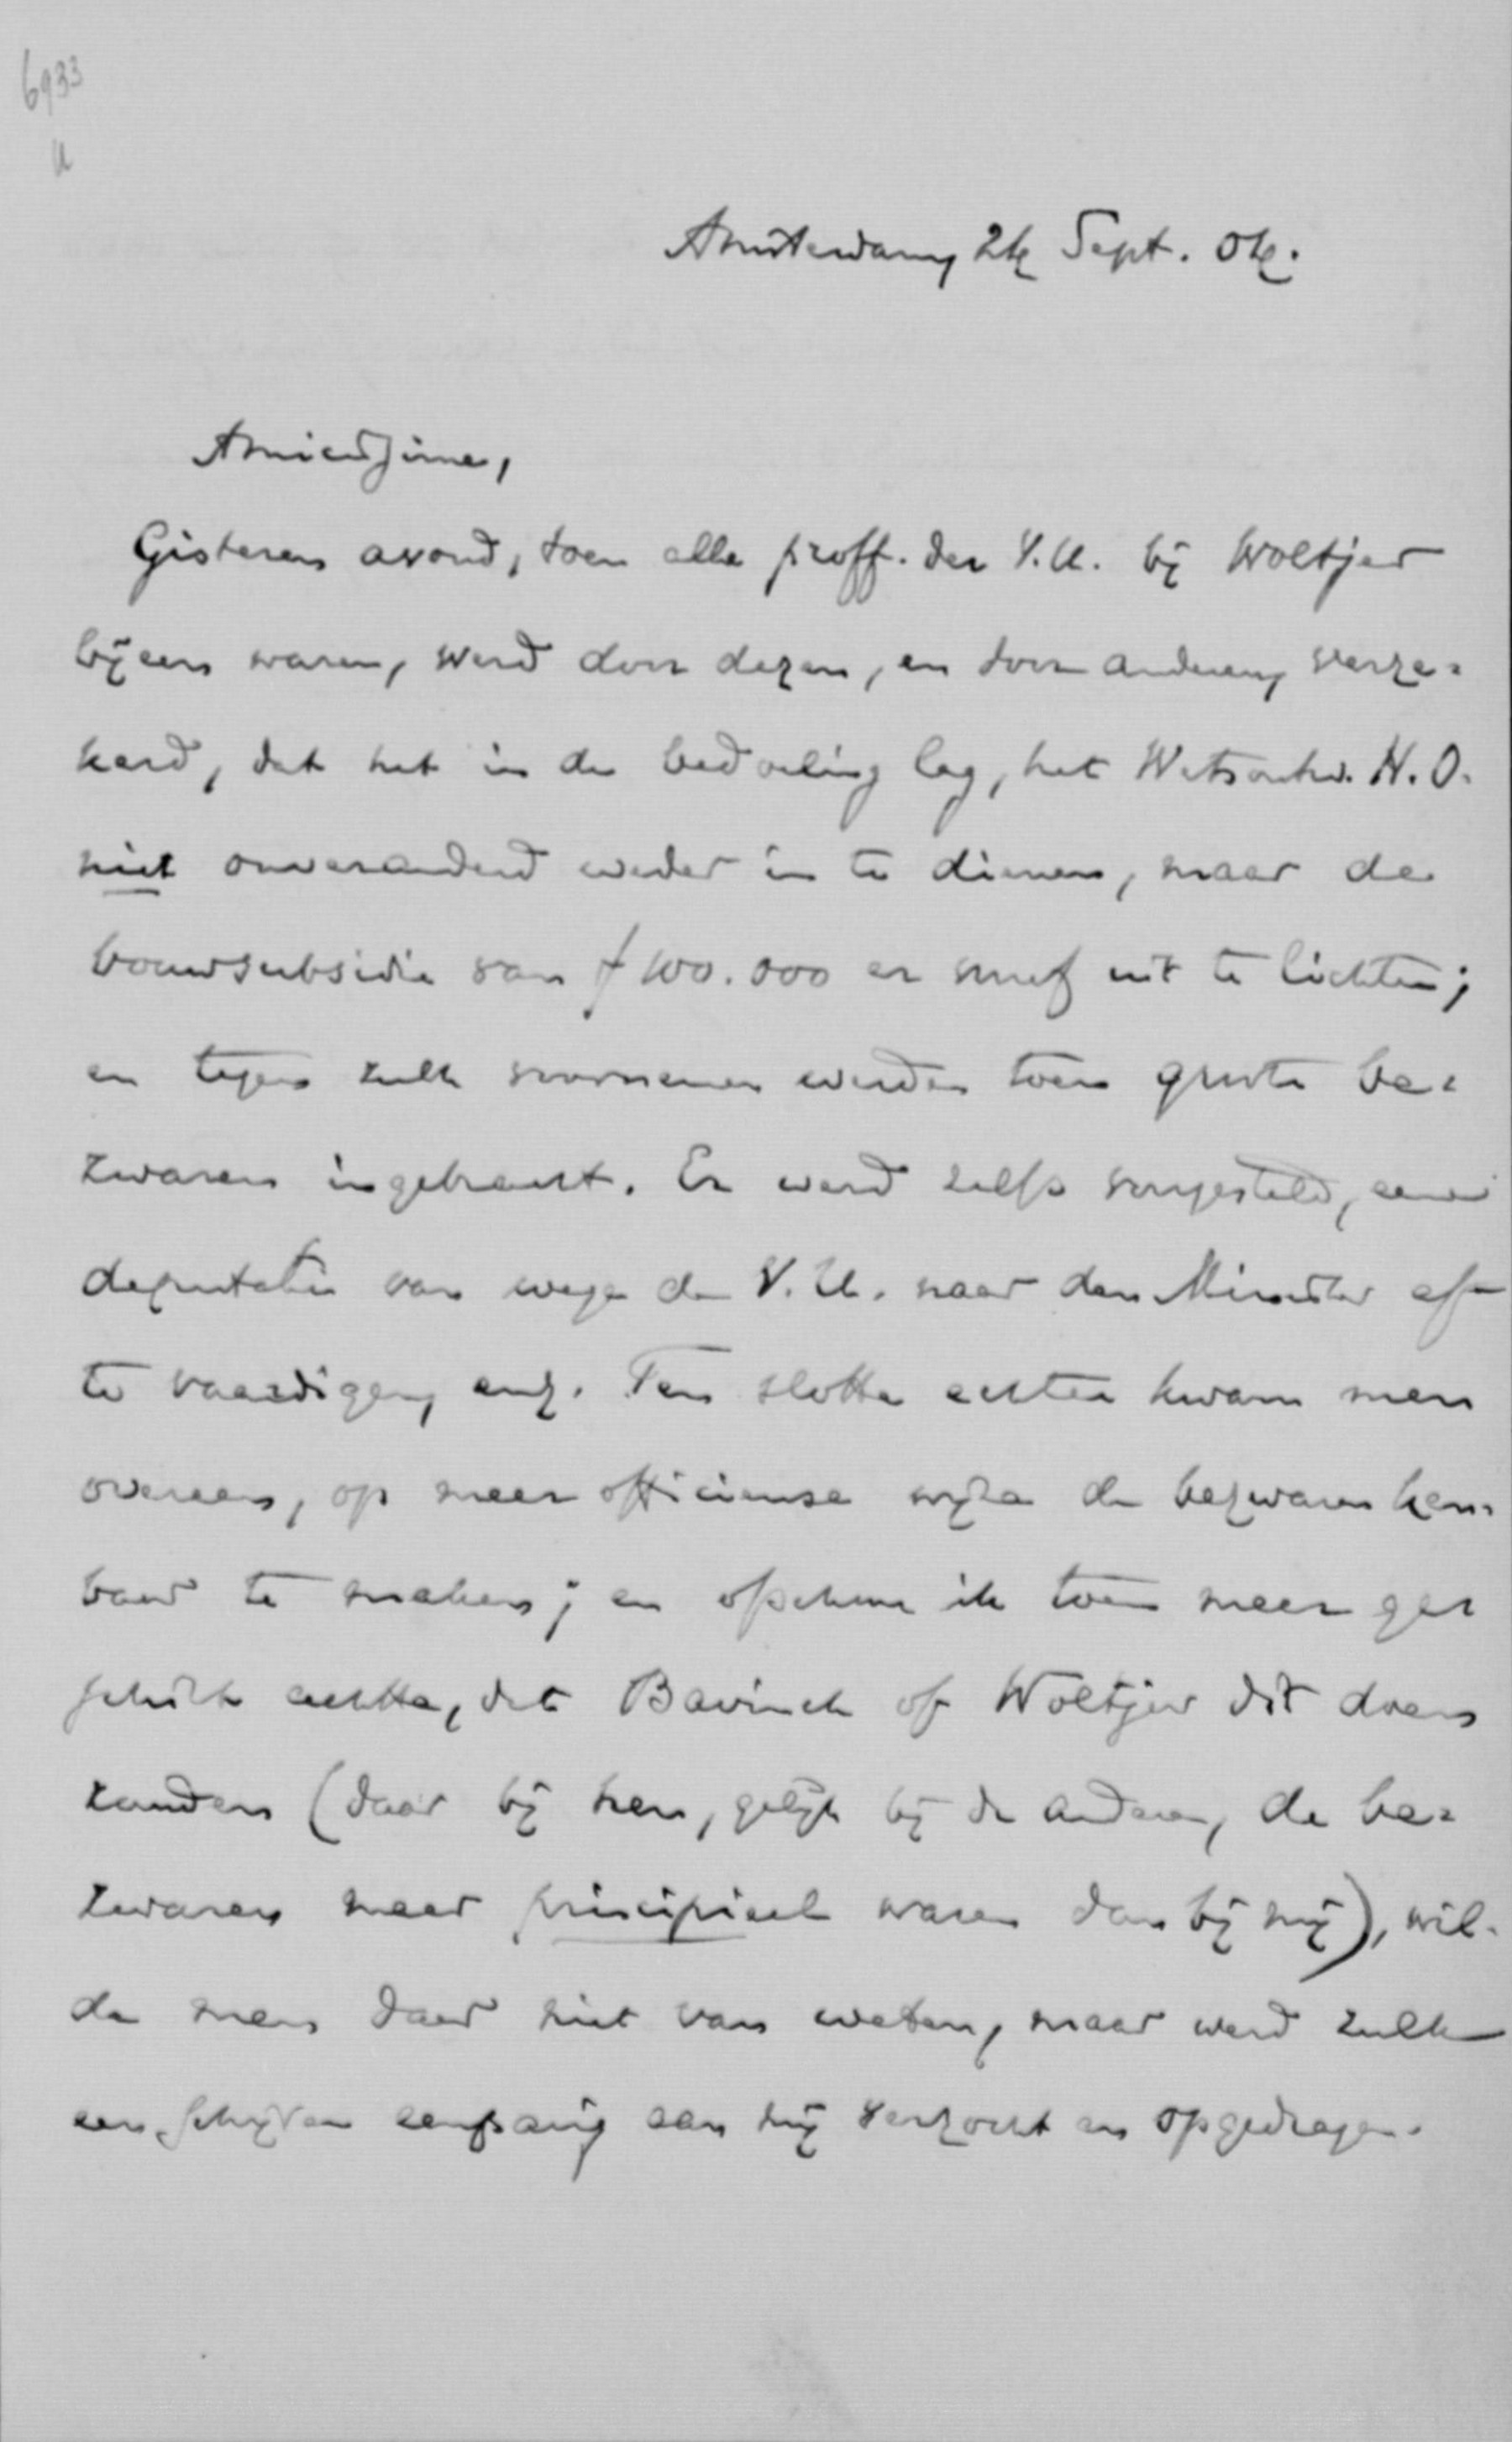 6933
U
Amsterdam, 24 Sept. 04.
Amicissime,
Gisteren avond, toen alle proff. der V.U. bij Woltjer
bijeen waren, werd door dezen, en door anderen, verze=
kerd, dat het in de bedoeling lag, het Wetsontw. H.O.
niet onveranderd weder in te dienen, maar de
bouwsubsidie van ƒ 100.000 er vooraf uit te lichten;
en tegen zulk voornemen werden toen groote be=
zwaren ingebracht. Er werd zelfs voorgesteld, eene
deputatie van wege de V.U. naar den Minister af
te vaardigen, enz. Ten slotte echter kwam men
overeen, op meer officieuse wijze de bezwaren ken=
baar te maken; en ofschoon ik toen meer ge=
schikt achtte, dat Bavinck of Woltjer dit doen
zouden (daar bij hen, gelijk bij de anderen, de be=
zwaren meer principieel waren dan bij mij), wil=
de men daar niet van weten, maar werd zulk
een schrijven eenparig aan mij verzocht en opgedragen.